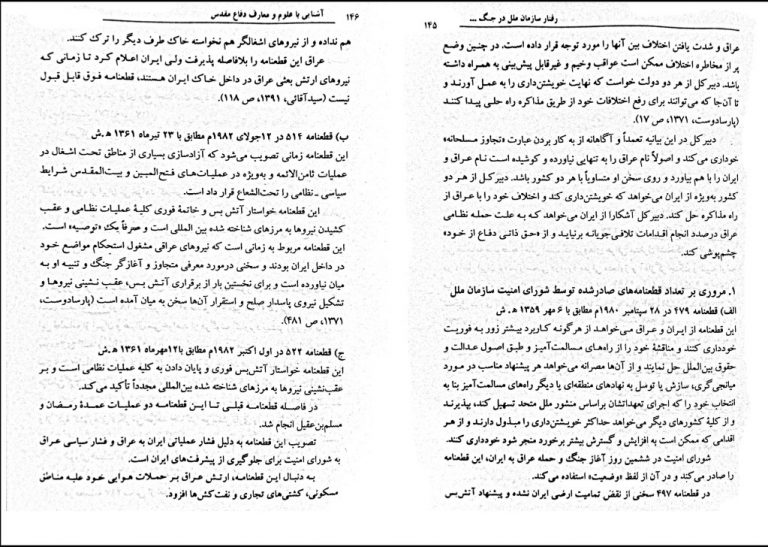 رفتار سازمان ملل در جنگ ... ۱۴۵
عراق و شدت یافتن اختلاف بین آنها را مورد توجه قرار داده است. در چنین وضع
پر از مخاطره اختلاف ممکن است عواقب وخیم و غیرقابل پیش‌بینی به همراه داشته
باشد. دبیرکل از هر دو دولت خواست که نهایت خویشتن‌داری را به عمل آورند و
تا آن‌جا که می‌توانند برای رفع اختلافات خود از طریق مذاکره راه حلی پیدا کنند
(پارسادوست، ۱۳۷۱، ص ۱۷).
دبیرکل در این بیانیه تعمداً و آگاهانه از به کار بردن عبارت «تجاوز مسلحانه»
خودداری می‌کند و اصولاً نام عراق را به تنهایی نیاورده و کوشیده است نام عراق و
ایران را با هم بیاورد و روی سخن او متساویاً با هر دو کشور باشد. دبیرکل از هر دو
کشور به‌ویژه از ایران می‌خواهد که خویشتن‌داری کند و اختلاف خود را با عراق از
راه مذاکره حل کند. دبیرکل آشکارا از ایران می‌خواهد که به علت حمله نظامی
عراق درصدد انجام اقدامات تلافی‌جویانه برنیاید و از «حق ذاتی دفاع از خود»
چشم‌پوشی کند.
۱. مروری بر تعداد قطعنامه‌های صادرشده توسط شورای امنیت سازمان ملل
الف) قطعنامه ۴۷۹ در ۲۸ سپتامبر ۱۹۸۰م مطابق با ۶ مهر ۱۳۵۹ ه‍.ش
این قطعنامه از ایران و عراق می‌خواهد از هرگونه کاربرد بیشتر زور به فوریت
خودداری کنند و مناقشهٔ خود را از راه‌های مسالمت‌آمیز و طبق اصول عدالت و
حقوق بین‌الملل حل نمایند و از آن‌ها مصرانه می‌خواهد هر پیشنهاد مناسب در مورد
میانجی‌گری، سازش یا توسل به نهادهای منطقه‌ای یا دیگر راه‌های مسالمت‌آمیز بنا به
انتخاب خود را که اجرای تعهداتشان براساس منشور ملل متحد تسهیل کند، بپذیرند
و از کلیهٔ کشورهای دیگر می‌خواهد حداکثر خویشتن‌داری را مبذول دارند و از هر
اقدامی که ممکن است به افزایش و گسترش بیشتر برخورد منجر شود خودداری کنند.
شورای امنیت در ششمین روز آغاز جنگ و حمله عراق به ایران، این قطعنامه
را صادر می‌کند و در آن از لفظ «وضعیت» استفاده می‌کند.
در قطعنامه ۴۹۷ سخنی از نقض تمامیت ارضی ایران نشده و پیشنهاد آتش‌بس
۱۴۶ آشنایی با علوم و معارف دفاع مقدس
هم نداده و از نیروهای اشغالگر هم نخواسته خاک طرف دیگر را ترک کنند.
عراق این قطعنامه را بلافاصله پذیرفت ولی ایران اعلام کرد تا زمانی که
نیروهای ارتش بعثی عراق در داخل خاک ایران هستند، قطعنامه فوق قابل قبول
نیست (سیدآقائی، ۱۳۹۱، ص ۱۱۸).
ب) قطعنامه ۵۱۴ در ۱۲جولای ۱۹۸۲م مطابق با ۲۳ تیرماه ۱۳۶۱ ه‍.ش
این قطعنامه زمانی تصویب می‌شود که آزادسازی بسیاری از مناطق تحت اشغال در
عملیات ثامن‌الائمه و به‌ویژه در عملیات‌های فتح‌المبین و بیت‌المقدس شرایط
سیاسی ـ نظامی را تحت‌الشعاع قرار داد است.
این قطعنامه خواستار آتش بس و خاتمهٔ فوری کلیهٔ عملیات نظامی و عقب
کشیدن نیروها به مرزهای شناخته شده بین المللی است و صرفاً یک «توصیه» است.
این قطعنامه مربوط به زمانی است که نیروهای عراقی مشغول استحکام مواضع خود
در داخل ایران بودند و سخنی درمورد معرفی متجاوز و آغازگر جنگ و تنبیه او به
میان نیاورده است و برای نخستین بار از برقراری آتش‌بس، عقب‌نشینی نیروها و
تشکیل نیروی پاسدار صلح و استقرار آن‌ها سخن به میان آمده است (پارسادوست،
۱۳۷۱، ص ۴۸۱).
ج) قطعنامه ۵۲۲ در اول اکتبر ۱۹۸۲م مطابق با۱۲مهرماه ۱۳۶۱ ه‍.ش
این قطعنامه خواستار آتش‌بس فوری و پایان دادن به کلیه عملیات نظامی است و بر
عقب‌نشینی نیروها به مرزهای شناخته شده بین‌المللی مجدداً تأکید می‌کند.
در فاصله قطعنامه قبلی تا این قطعنامه دو عملیات عمدهٔ رمضان و
مسلم‌بن‌عقیل انجام شد.
تصویب این قطعنامه به دلیل فشار عملیاتی ایران به عراق و فشار سیاسی عراق
به شورای امنیت برای جلوگیری از پیشرفت‌های ایران است.
به دنبال این قطعنامه، ارتش عراق بر حملات هوایی خود علیه مناطق
مسکونی، کشتی‌های تجاری و نفت‌کش‌ها افزود.